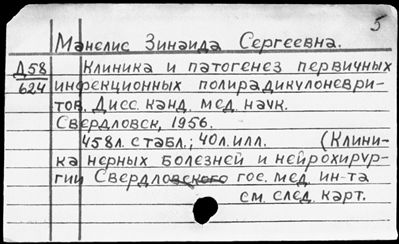 5
Манелис Зинаида Сергеевна.
Д58 Клиника и патогенез первичных
624 инфекционных полирадикулоневри-
тов. Дисс. канд. мед. наук.
Свердловск, 1956.
458л. с табл.; 40л. илл. (Клини-
ка нерных болезней и нейрохирур-
гии Свердловского гос. мед. ин-та
см. след. карт.